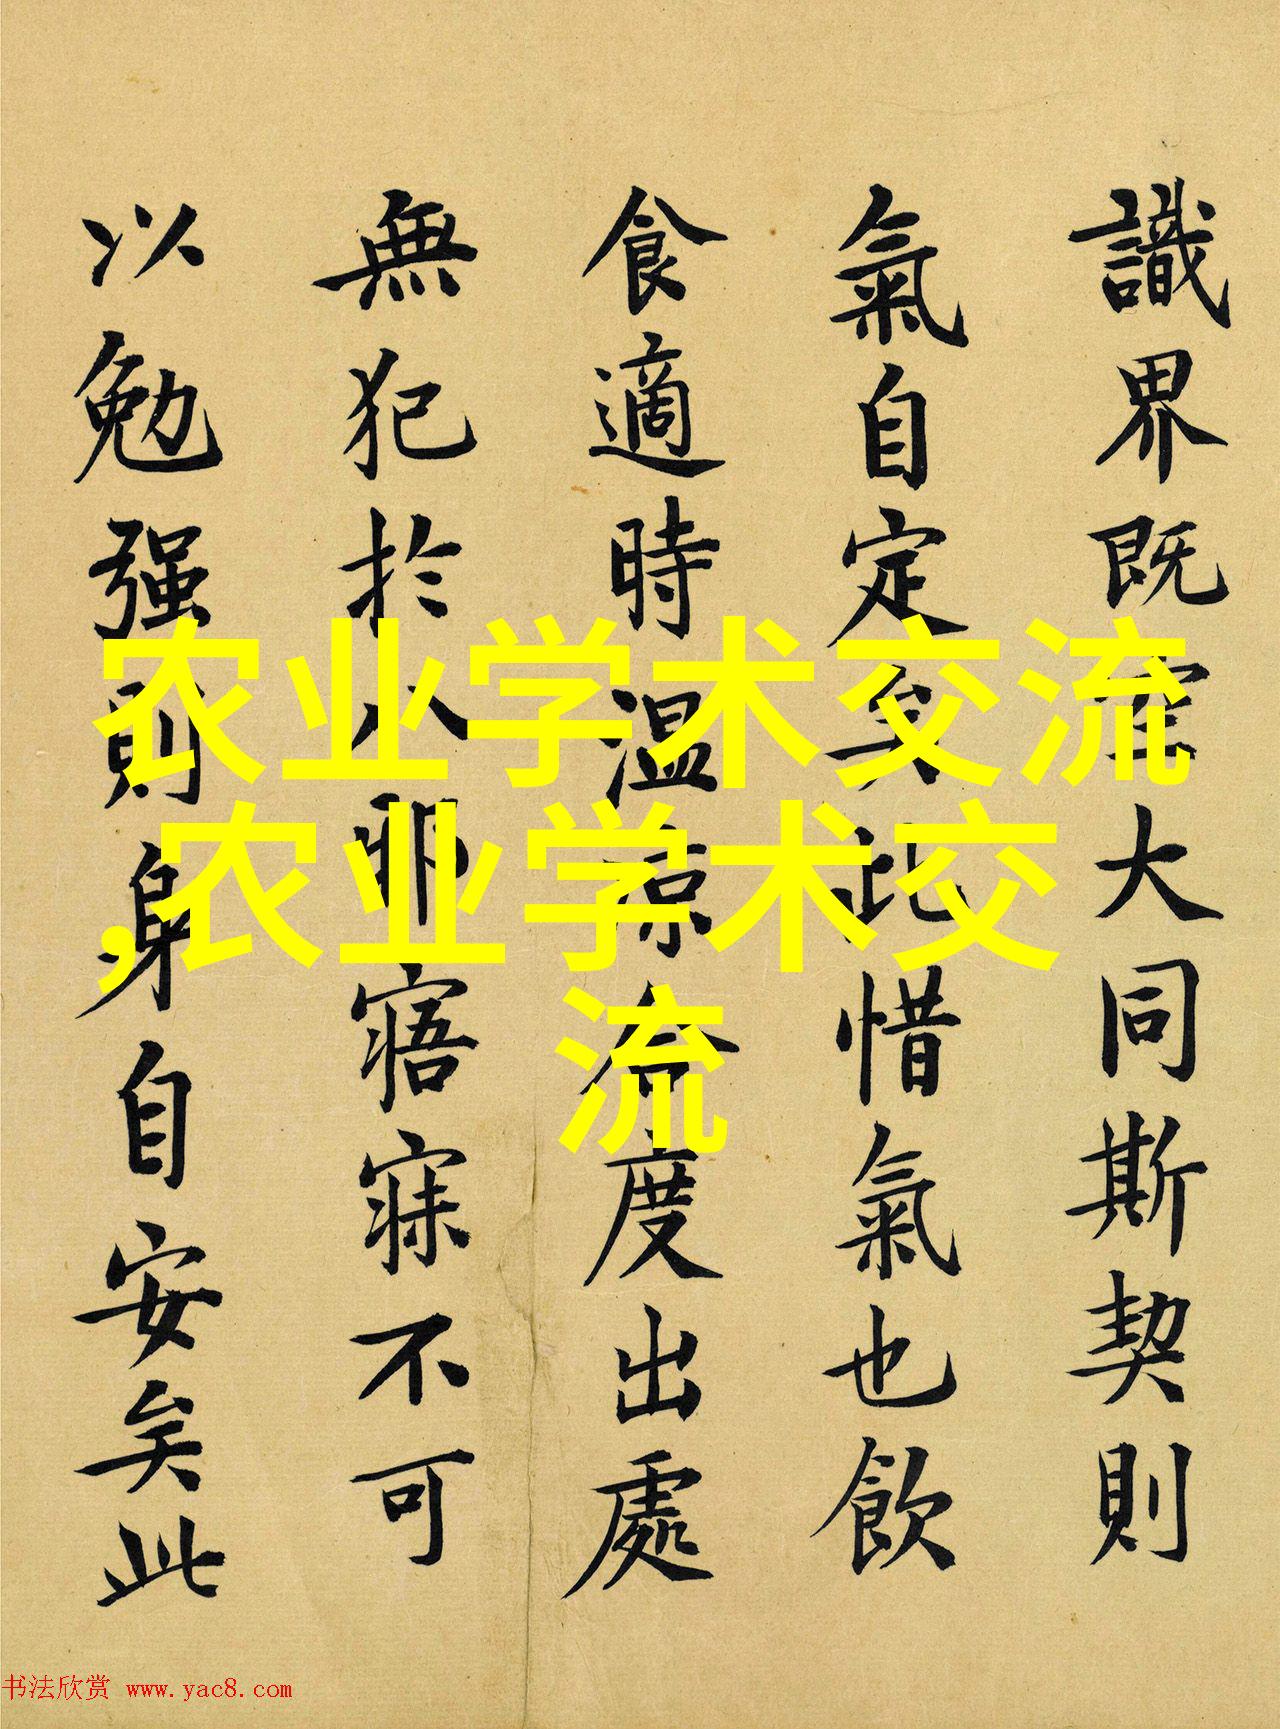 識界既空大同斯契則
氣自定矣此惜氣也飲
食適時溫涼合度出處
無犯於八邪寤寐不可
以勉强則身自安矣此
农业学术交流
,农业学术交
流
书法欣赏 www.yac8.com